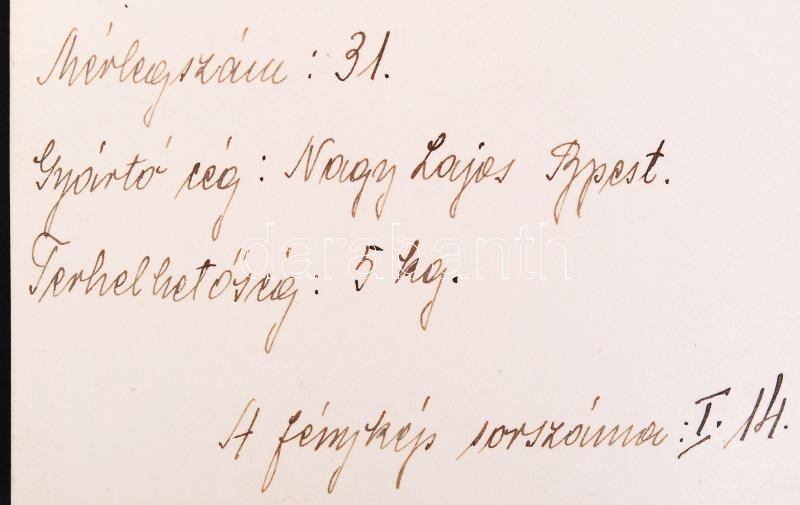 Mérlegszám : 31.
Gyártó cég : Nagy Lajos Bpest.
Terhelhetőség : 5 kg.
darabanth
A fénykép sorszáma : I. 14.